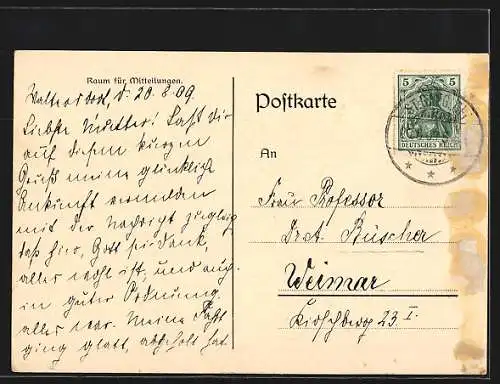 Raum für Mitteilungen.
Waltersdorf, d. 20.8.09
Liebste Mutter! Laßt dir
auf diesem kurzen
Gruß meine glückliche
Ankunft vermelden
mit der Nachricht zugleich
daß hier, Gott sei dank,
alles recht ist, und auch
in guter Ordnung
alles war. Meine Fahrt
ging glatt, abgeholt hat
Postkarte
5 5
DEUTSCHES REICH
An
Frau Professor
Büscher
Weimar
Kirschberg 23 I.